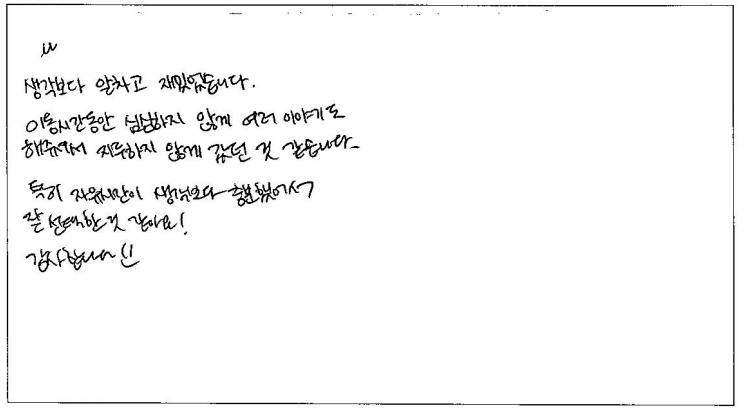 생각보다 알차고 재밌었습니다.
이동시간동안 심심하지 않게 여러 이야기도
해주셔서 지루하지 않게 갔던 것 같습니다.
특히 자유시간이 생각보다 충분했어서
잘 선택한 것 같아요!
감사합니다!!